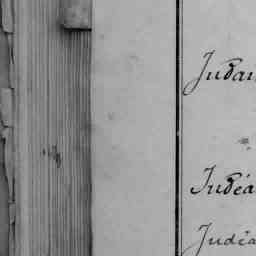 Judan
Judéa
Judéa